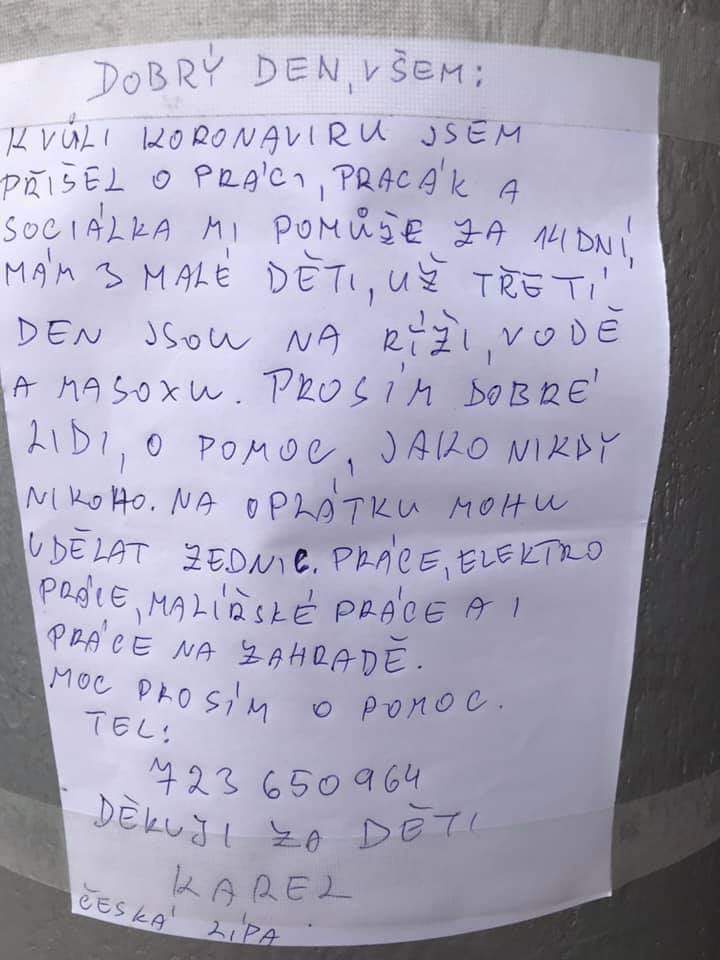 DOBRÝ DEN, VŠEM:
KVŮLI KORONAVIRU JSEM
PŘIŠEL O PRÁCI, PRACÁK A
SOCIÁLKA MI POMŮŽE ZA 14 DNÍ,
MÁM 3 MALÉ DĚTI, UŽ TŘETÍ
DEN JSOU NA RÍŽI, VODĚ
A MASOXU. PROSÍM DOBRÉ
LIDI, O POMOC, JAKO NIKDY
NIKOHO. NA OPLÁTKU MOHU
UDĚLAT ZEDNIC. PRÁCE, ELEKTRO
PRÁCE, MALÍŘSKÉ PRÁCE A I
PRÁCE NA ZAHRADĚ.
MOC PROSÍM O POMOC.
TEL:
723 650 964
DĚKUJI ZA DĚTI
KAREL
ČESKÁ LÍPA.